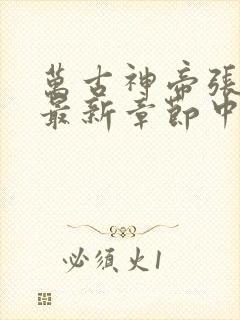 萬古神帝張
最新章節中
必須火1